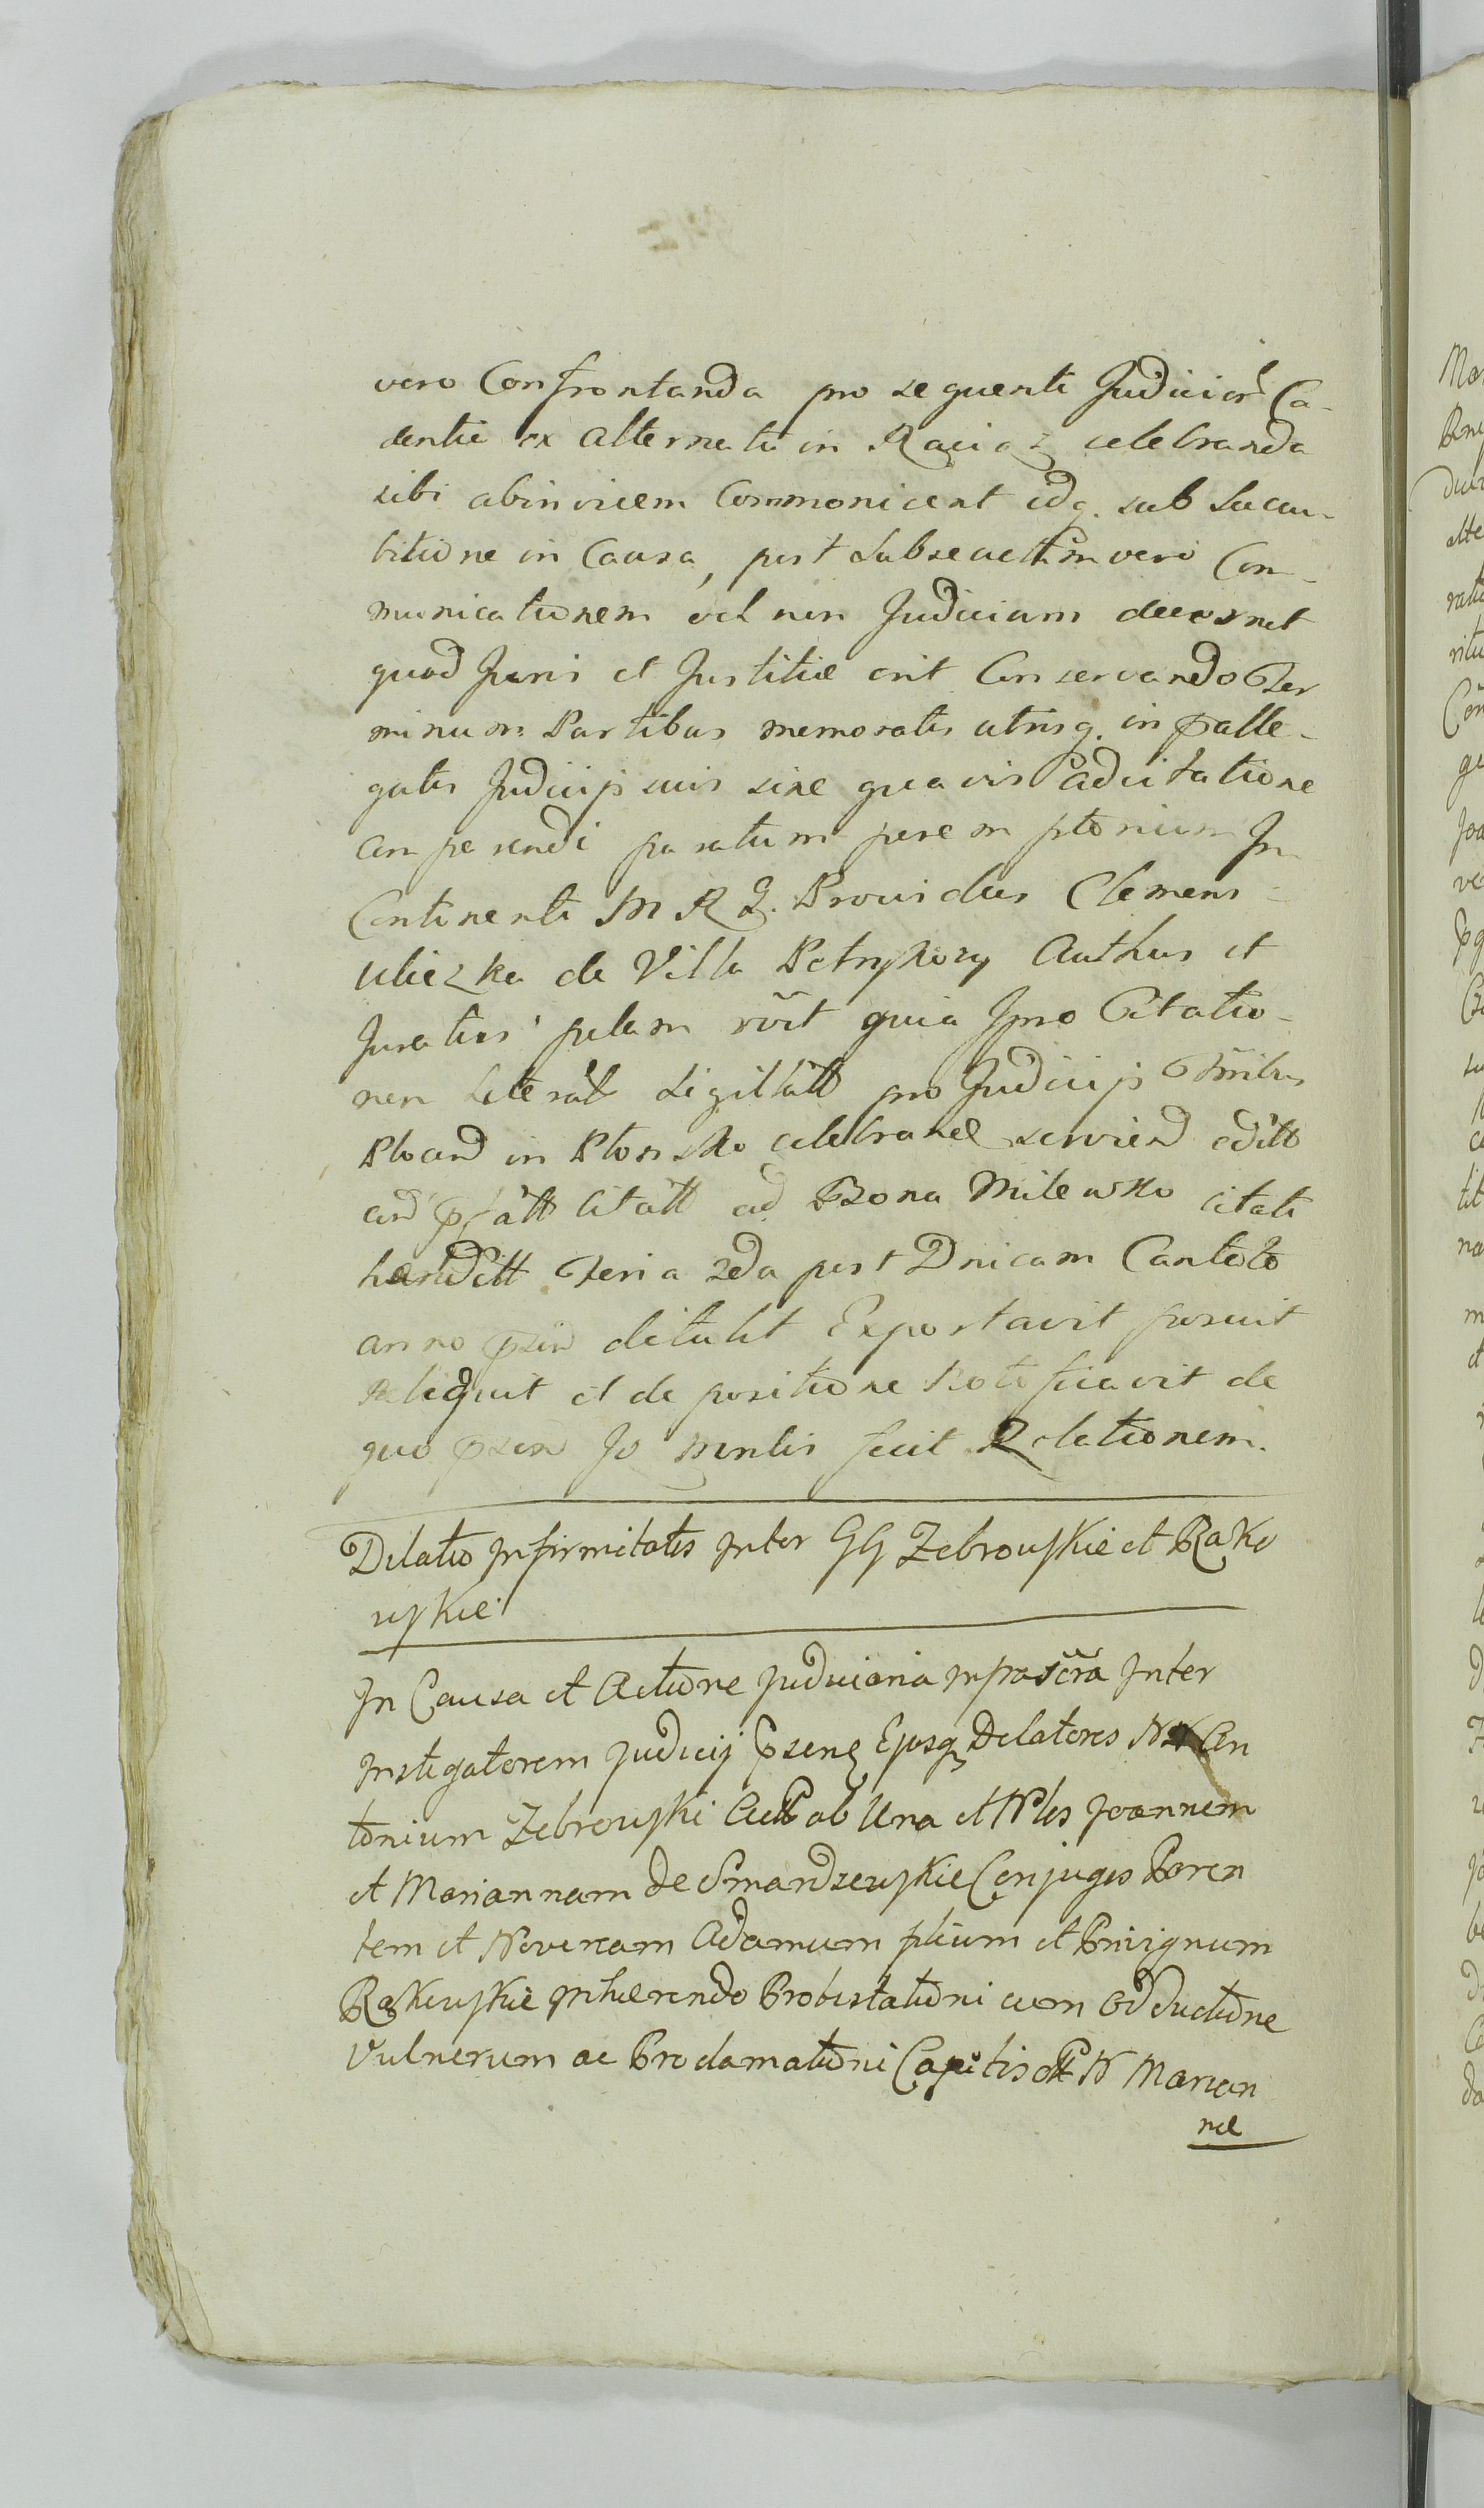 vero Confrontanda pro sequenti Judicior Ca-
dentie ex alternata in Raciąz celebranda
sibi abinvicem Commonicent idq. sub succu-
bitione in Causa, post subsecutam vero Com-
municationem vel non Judicium decernet
quod Juris et Justitiæ erit Conservando Ter
minum Partibus memoratis utrisq. in palle-
gatis Judicijs suis sine quavis adcitatione
comparendi paratum peremptorium In
Continenti M R Q. Providus Clemens
Uliczka de Villa Petrykozy Authus et
Juratus palam rõit quia Jpse Citatio-
nem Literal sigillatt pro Judicijs Tmibus
Plocen in Plonsko celebrand serviend editt
ad Bona Milewsko citati
hæreditt Feria 2da post Dnicam Cantate
anno psen detulit Exportavit posuit
Reliquit et de positione Notificavit de
quo psen Jo mntlis fecit Relationem.
Dilatio Infirmitatis Inter GG Zebrowskie et Rąko
wskie
In Causa et Actione Judiciaria Infrascra Inter
Instigatorem Judicij psens Ejusq Delatores NN An
tonium Zebrowski Act ab Una et Nbles Joannem
et Mariannam de Smardzewskie Conjuges Paren
tem et Novercam Adamum filium et Privignum
Rąkowskie Inhærendo Protestationi cum Obductione
Vulnerum ac Proclamationi Capitis N Marian
næ